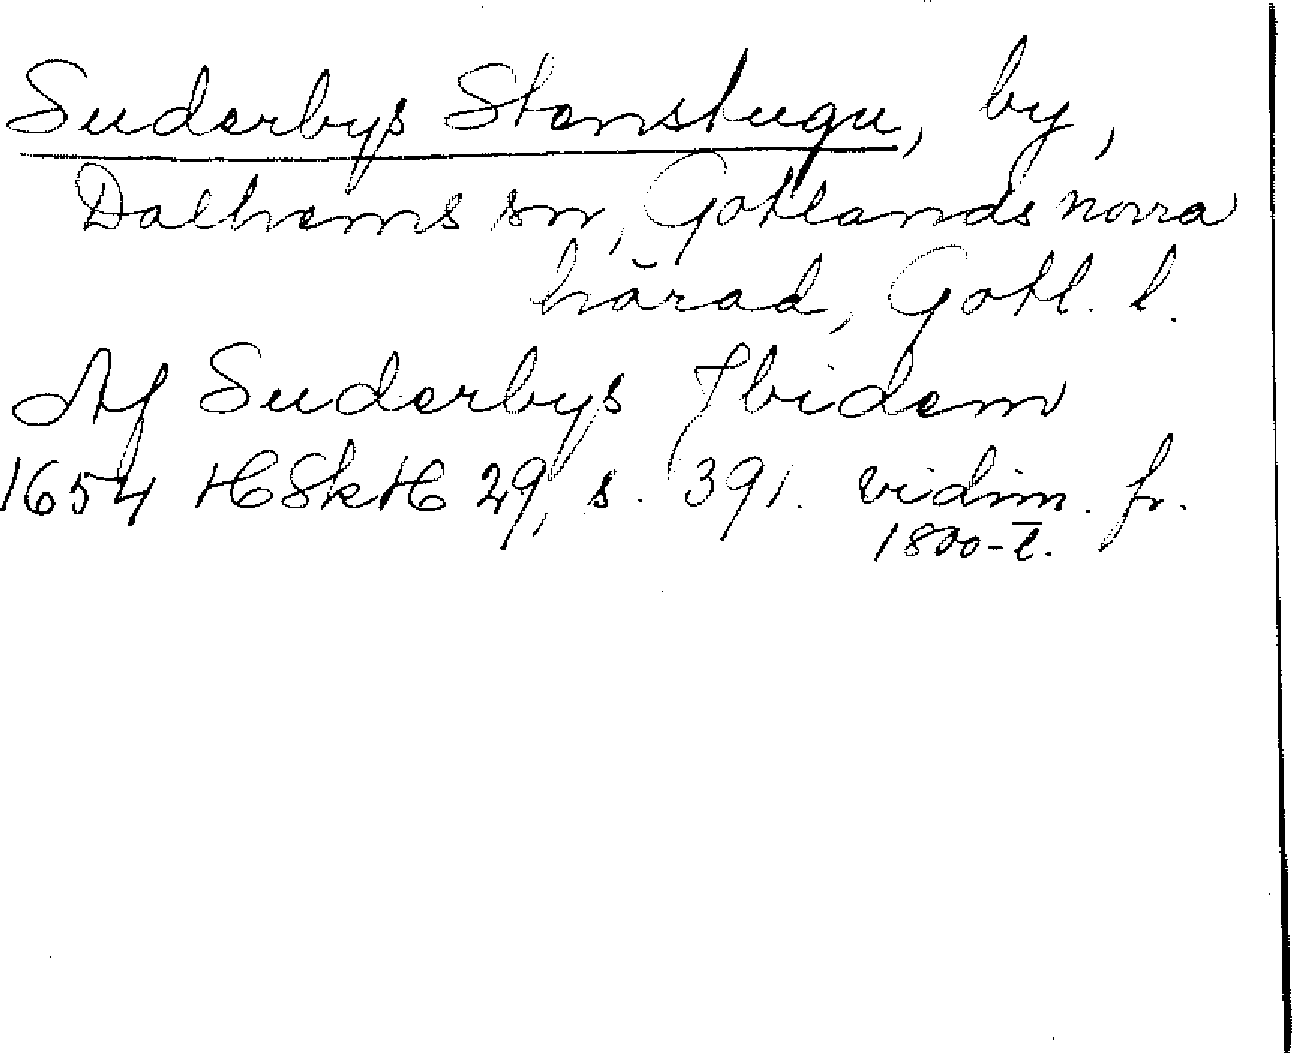 Suderbys Stenstugu, by,
Dalhems sn, Gotlands norra
härad, Gotl. l.
Af Suderbys Ibidem
1654 HSkH 29, s. 391. vidim. fr.
1800-t.